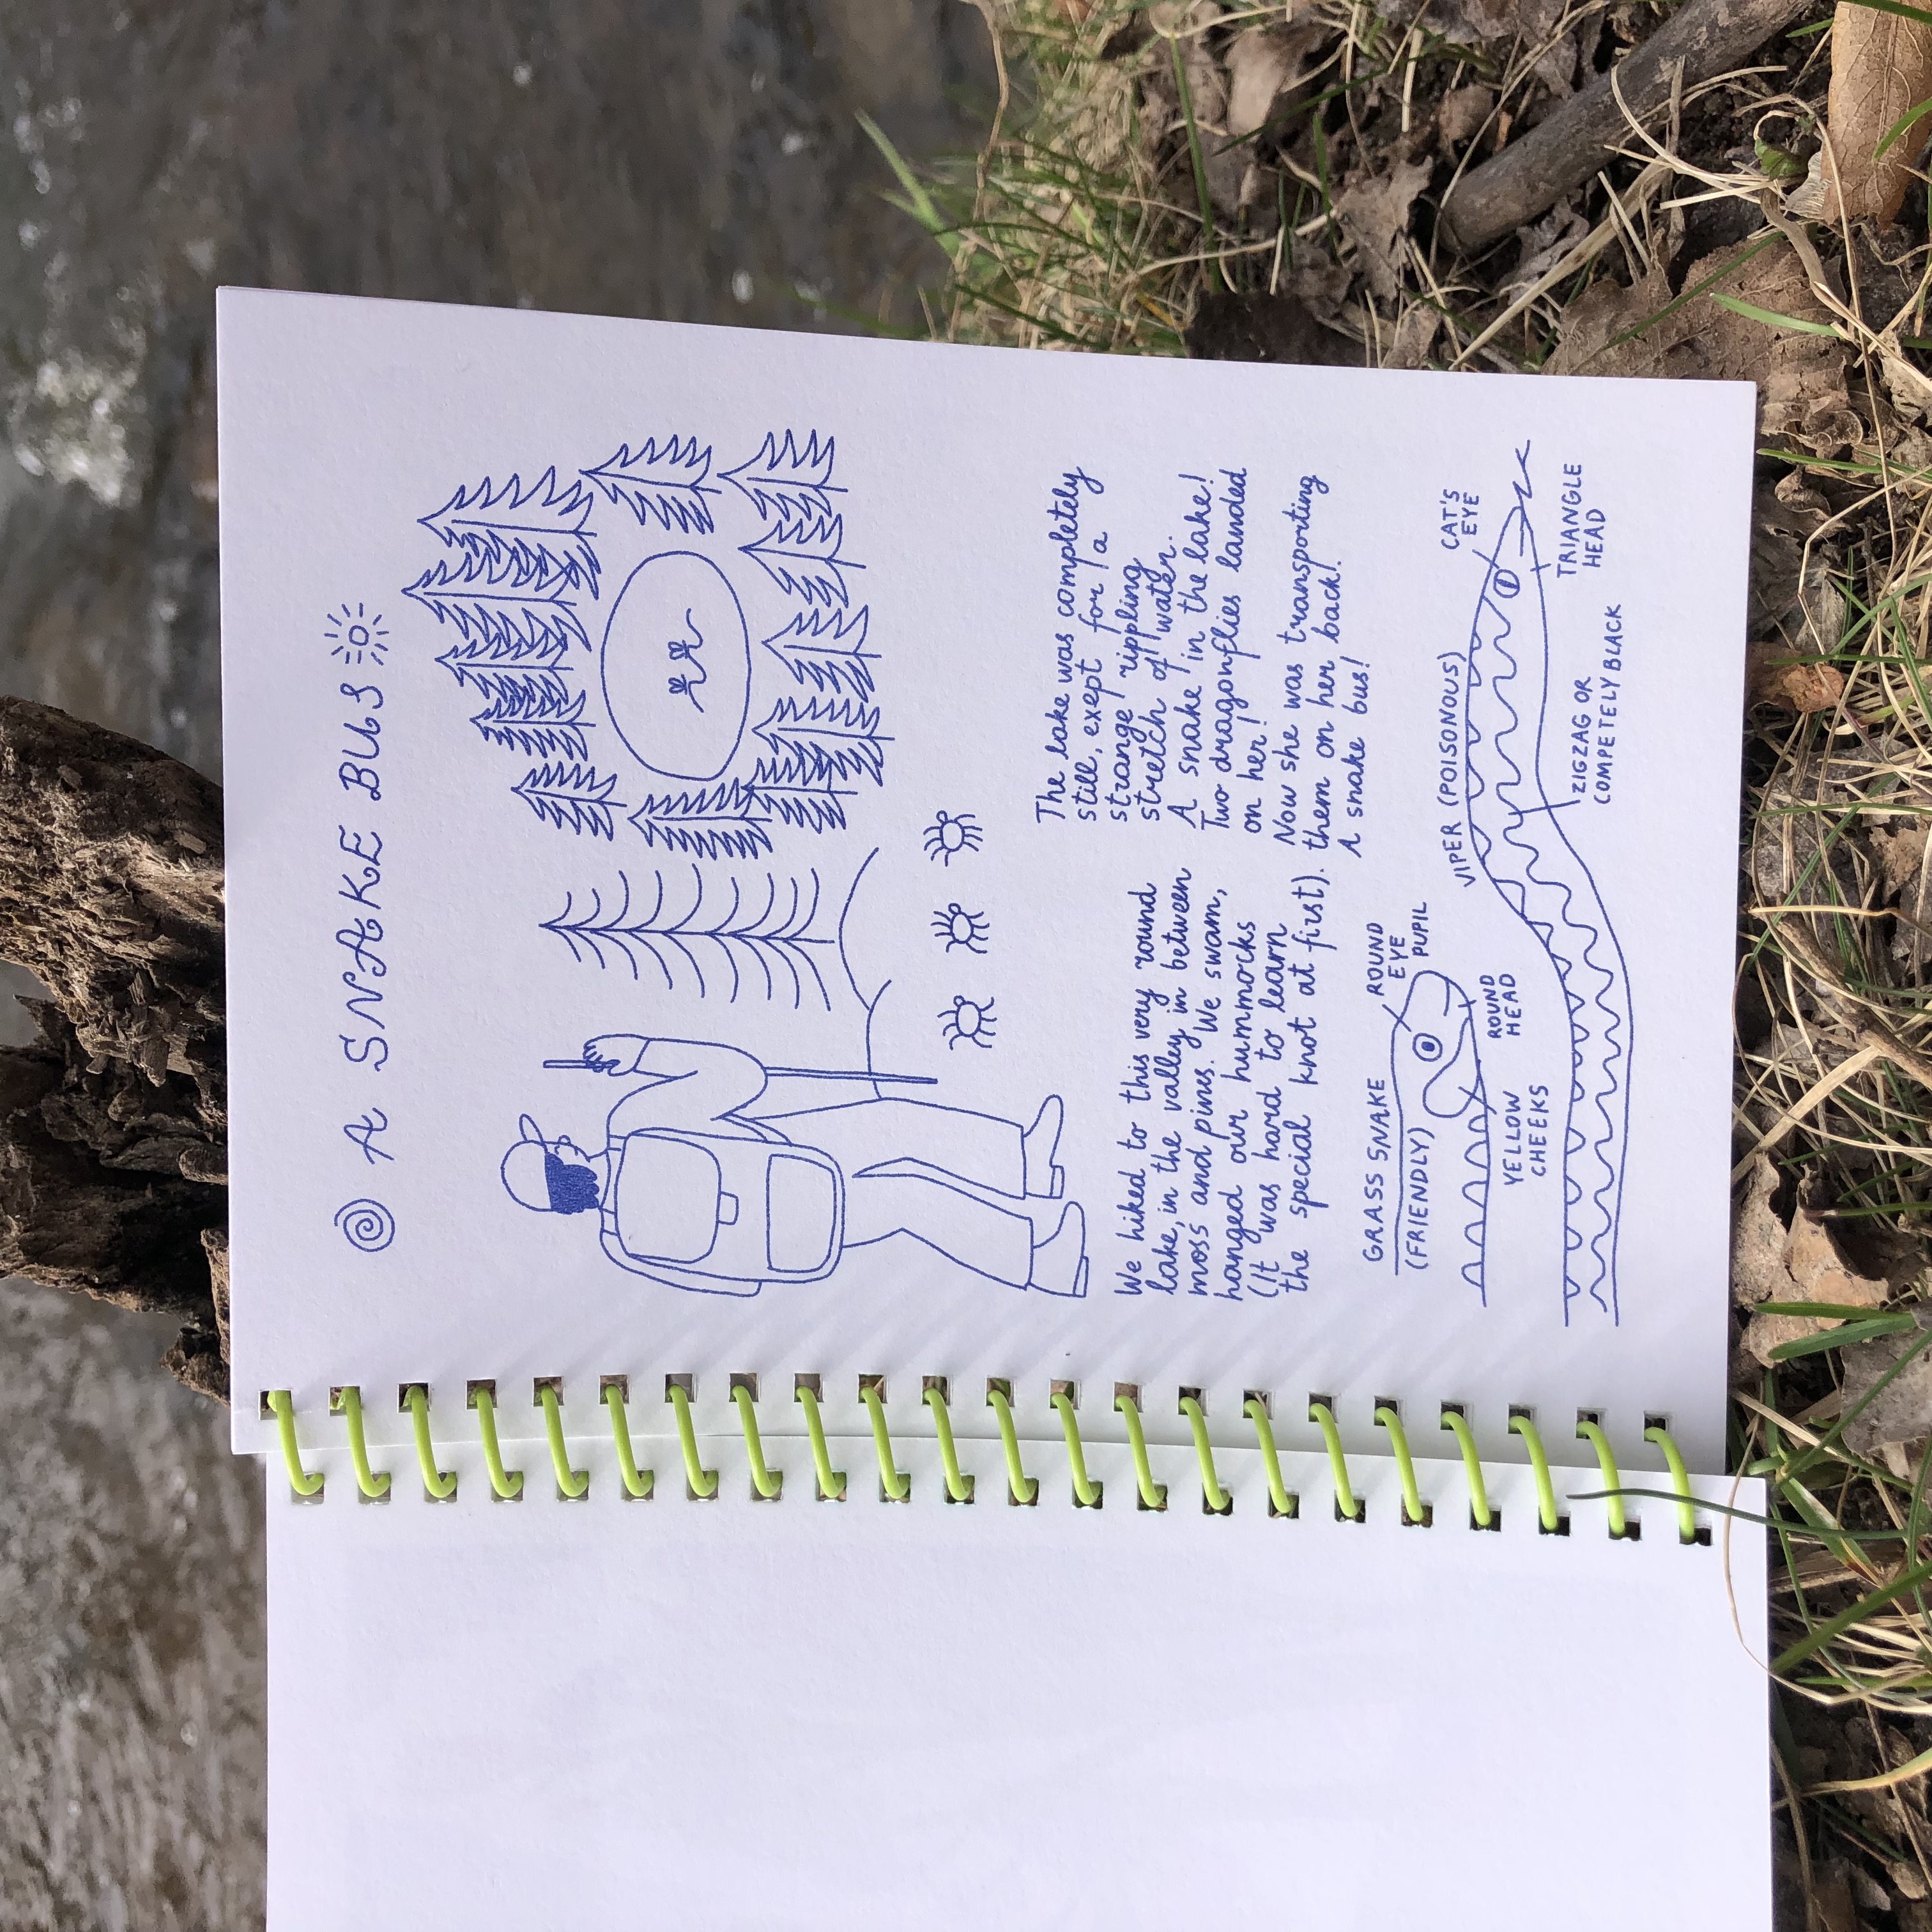 A SNAKE BUS
We hiked to this very round
lake, in the valley in between
moss and pines. We swam,
hanged our hummocks
(It was hard to learn
the special knot at first).
The lake was completely
still, exept for a
strange rippling
stretch of water.
A snake in the lake!
Two dragonflies landed
on her!
Now she was transporting
them on her back!
A snake bus!
GRASS SNAKE
(FRIENDLY)
ROUND
EYE
PUPIL
ROUND
HEAD
YELLOW
CHEEKS
VIPER (POISONOUS)
CAT'S
EYE
TRIANGLE
HEAD
ZIGZAG OR
COMPETELY BLACK